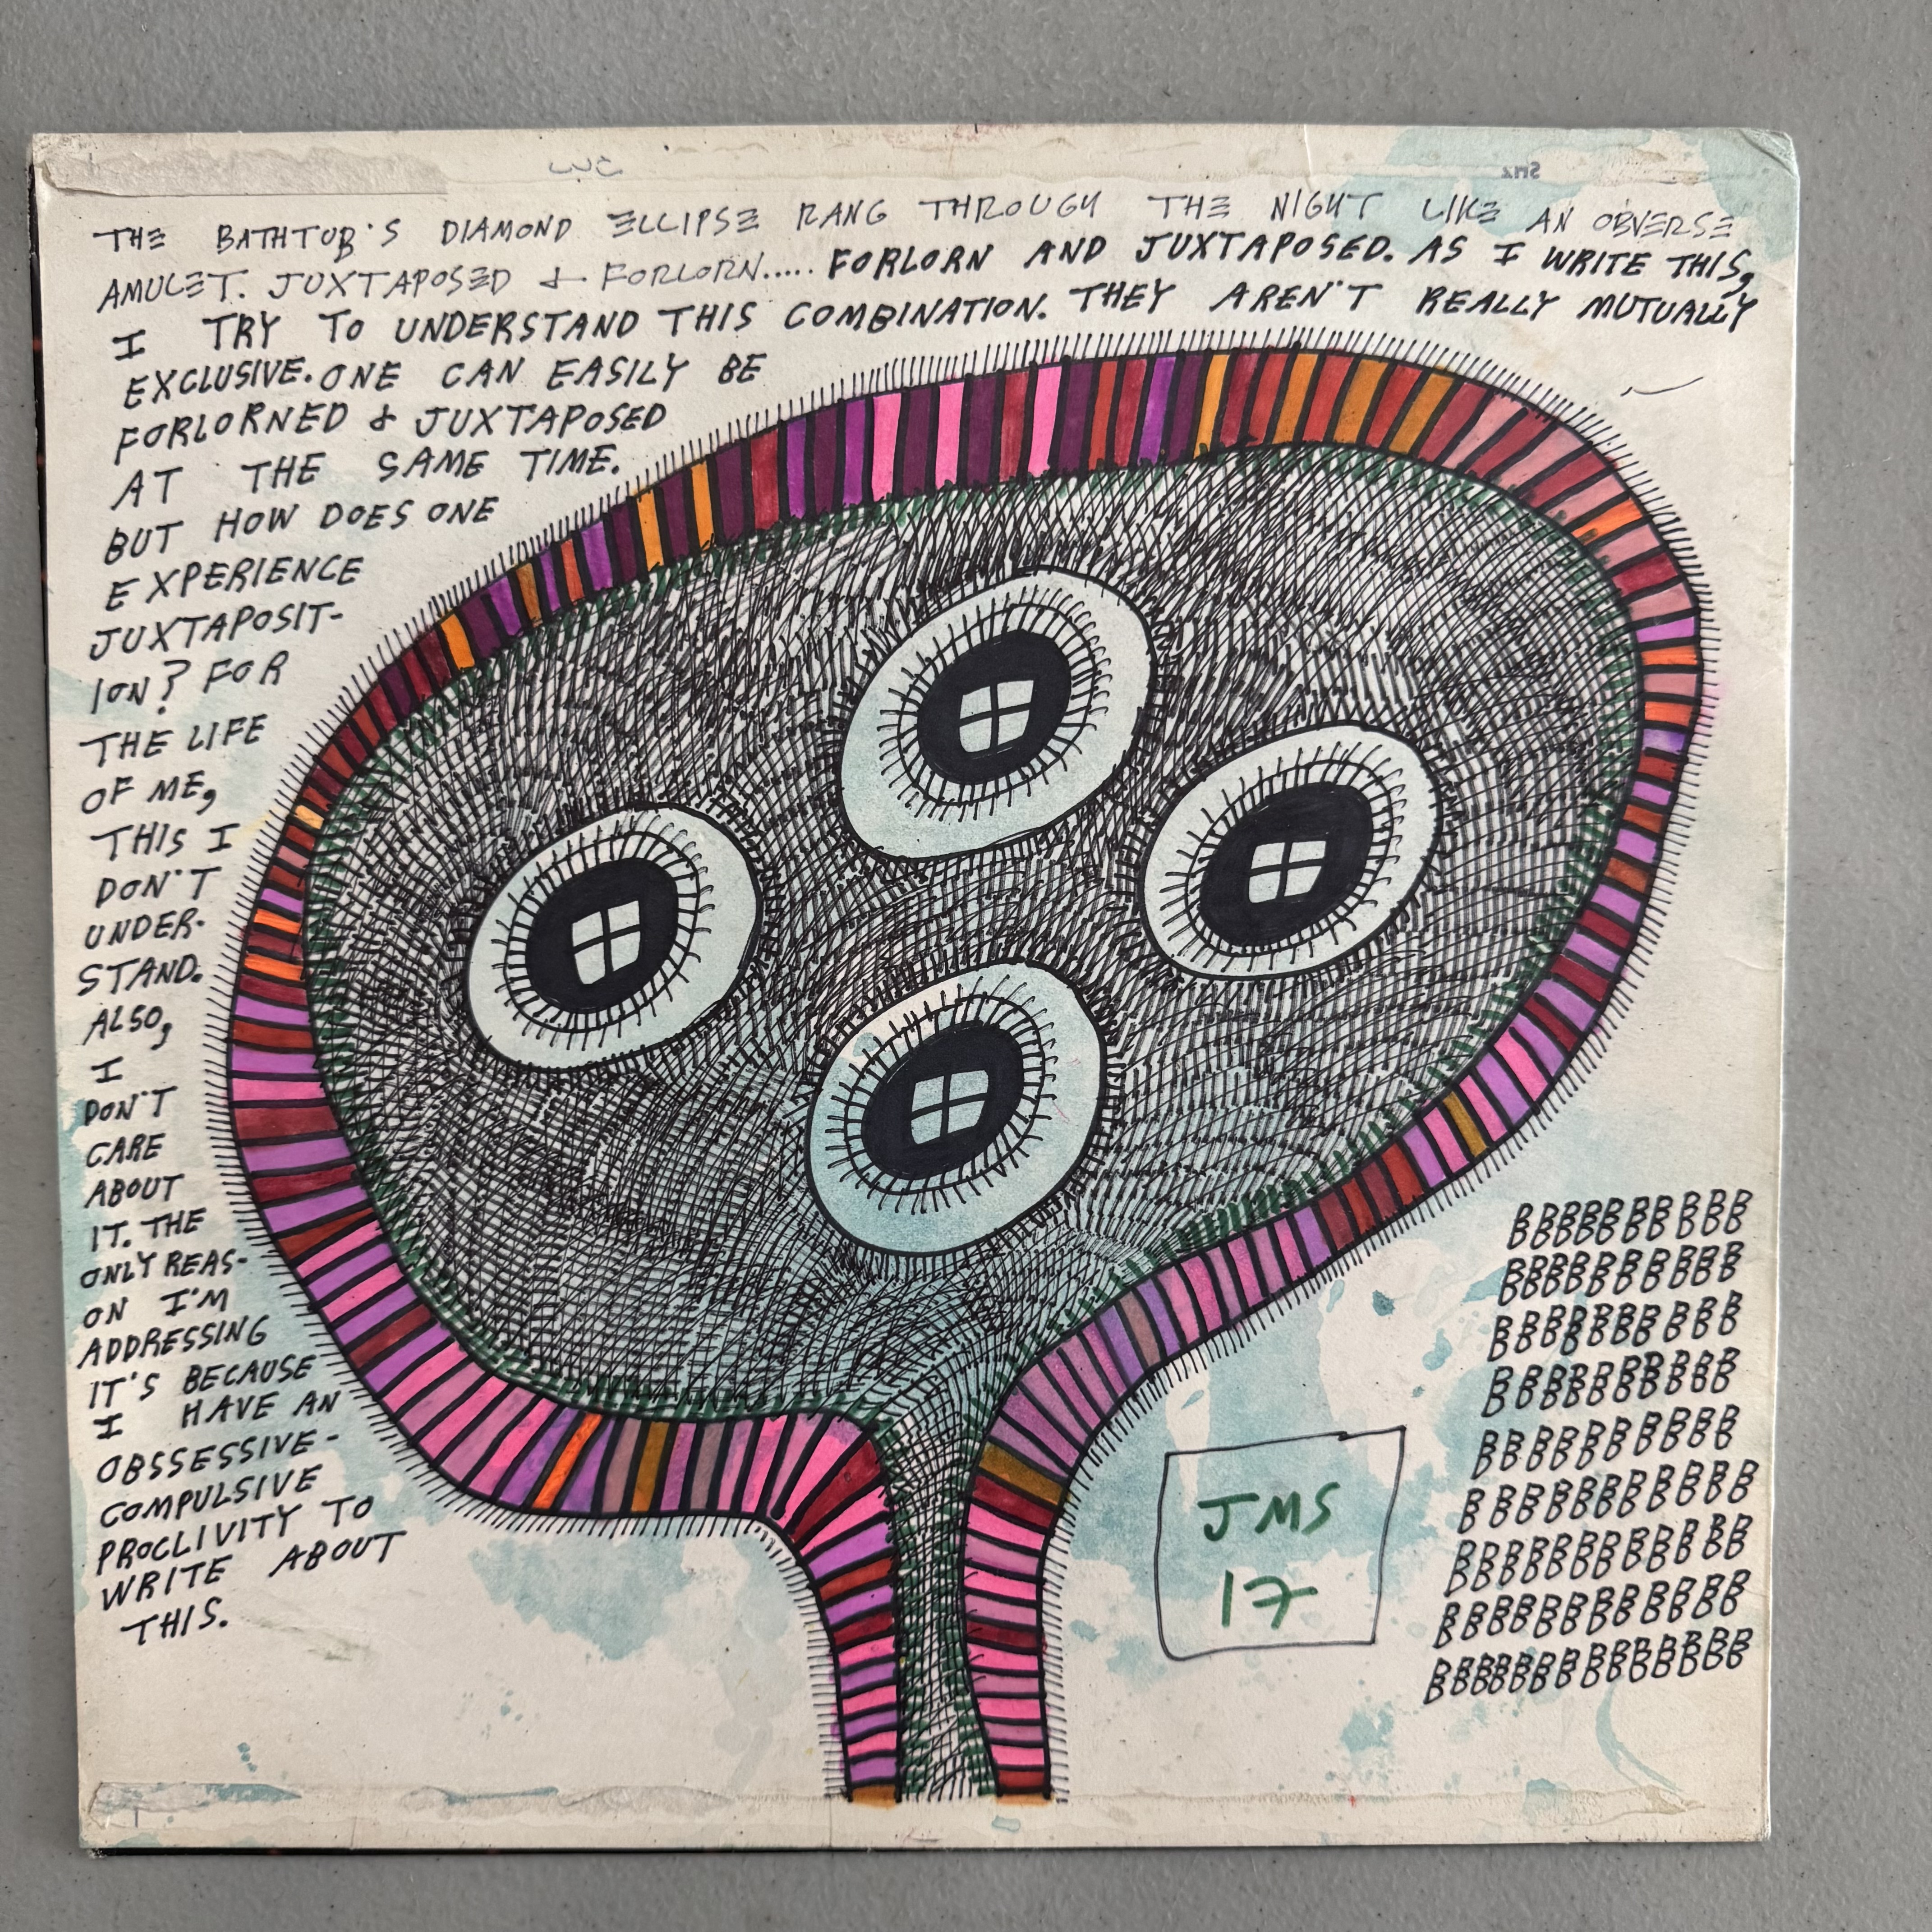 THE BATHTUB'S DIAMOND ELLIPSE RANG THROUGH THE NIGHT LIKE AN OBVERSE
AMULET. JUXTAPOSED & FORLORN..... FORLORN AND JUXTAPOSED. AS I WRITE THIS,
I TRY TO UNDERSTAND THIS COMBINATION. THEY AREN'T REALLY MUTUALLY
EXCLUSIVE. ONE CAN EASILY BE
FORLORNED & JUXTAPOSED
AT THE SAME TIME.
BUT HOW DOES ONE
EXPERIENCE
JUXTAPOSIT-
ION? FOR
THE LIFE
OF ME,
THIS I
DON'T
UNDER-
STAND.
ALSO,
I
DON'T
CARE
ABOUT
IT. THE
ONLY REAS-
ON I'M
ADDRESSING
IT'S BECAUSE
I HAVE AN
OBSSESSIVE-
COMPULSIVE
PROCLIVITY TO
WRITE ABOUT
THIS.
JMS
17
BBBBBBBBBB
BBBBBBBBBBB
BBBBBBBBBB
BBBBBBBBBB
BBBBBBBBBB
BBBBBBBBBBB
BBBBBBBBBBBB
BBBBBBBBBBBB
BBBBBBBBBBBBB